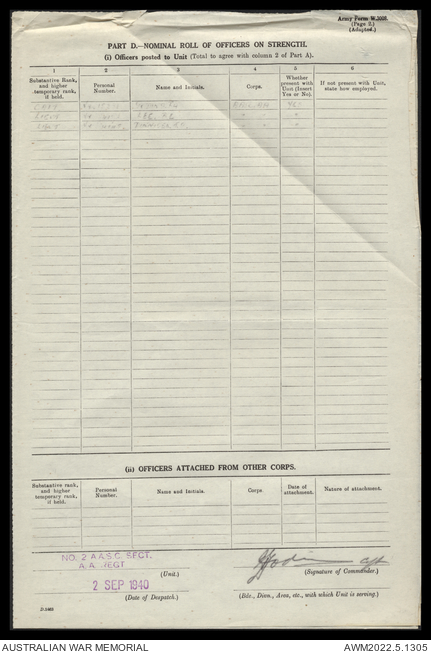 Army Form W.3008.
(Page 2.)
(Adapted.)
PART D.—NOMINAL ROLL OF OFFICERS ON STRENGTH.
(i) Officers posted to Unit (Total to agree with column 2 of Part A).
1 2 3 4 5 6
Substantive Rank, and higher temporary rank, if held. Personal Number. Name and Initials. Corps. Whether present with Unit (Insert Yes or No). If not present with Unit, state how employed.
(ii) OFFICERS ATTACHED FROM OTHER CORPS.
Substantive rank, and higher temporary rank, if held. Personal Number. Name and Initials. Corps. Date of attachment. Nature of attachment.
NO. 2 A.A.S.C. SECT.
(Unit.)
(Signature of Commander.)
2 SEP 1940
(Date of Despatch.)
(Bde., Divn., Area, etc., with which Unit is serving.)
AUSTRALIAN WAR MEMORIAL
AWM2022.5.1305